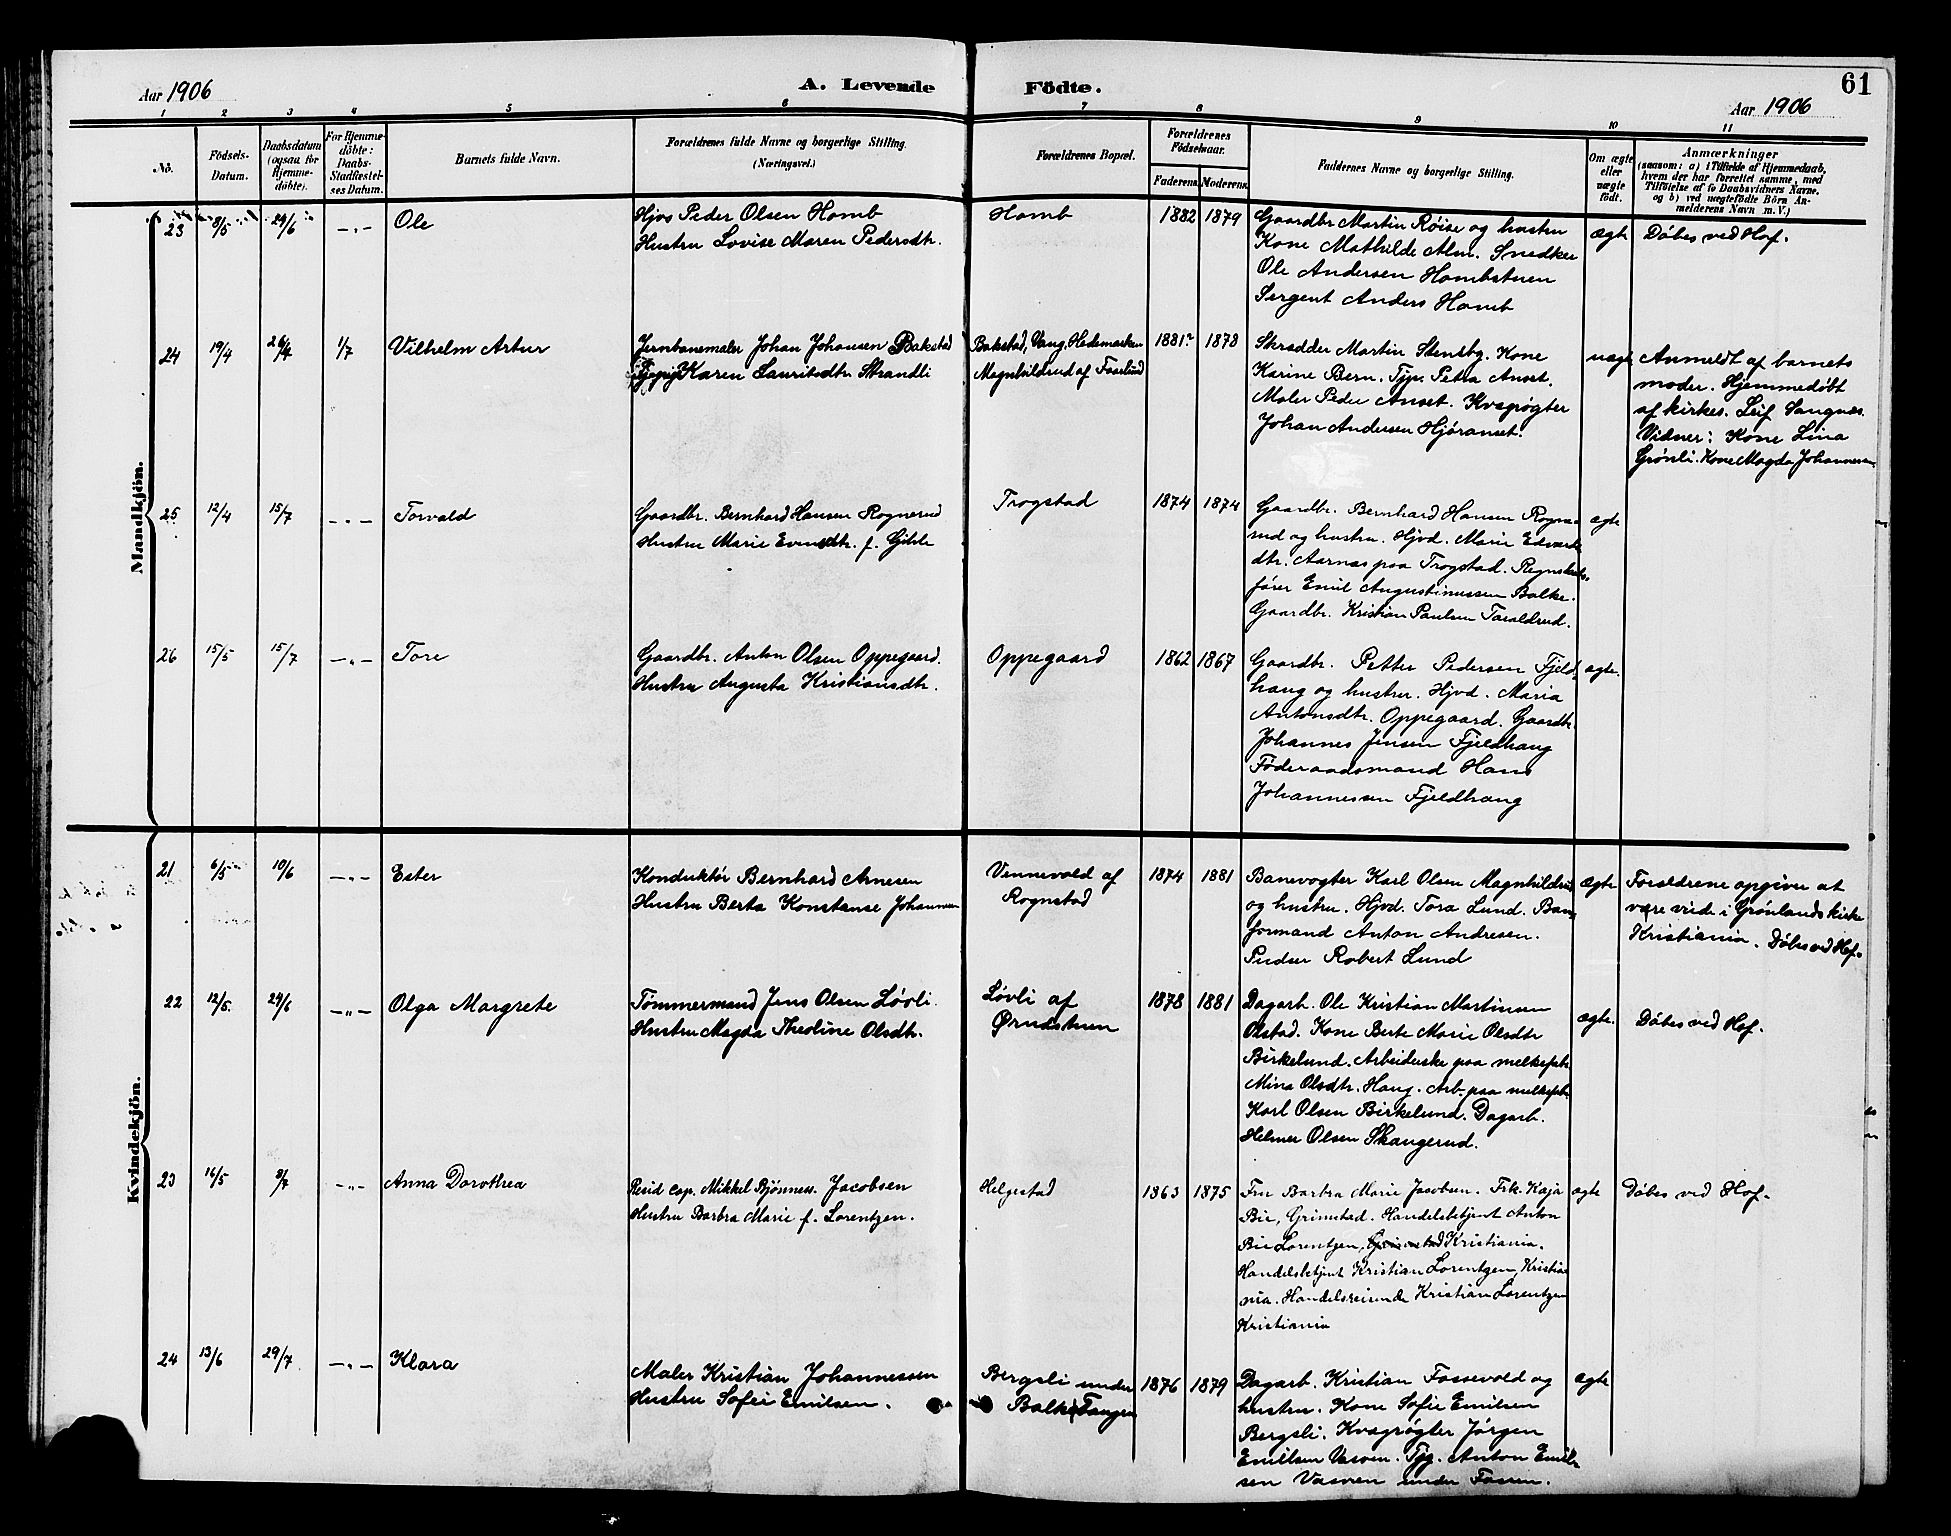 61
Aar 1906
A. Levende Födte.
Aar 1906
1 2 3 4 5 6 7 8 9 10 11
No.
Födsels-
Datum.
Daabsdatum
(ogsaa for
Hjemme-
döbte).
For Hjemme-
döbte:
Daabs-
Stadfæstel-
ses Datum.
Barnets fulde Navn.
Forældrenes fulde Navne og borgerlige Stilling.
(Næringsvei.)
Forældrenes Bopæl.
Forældrenes
Födselsaar.
Faderens. Moderens.
Faddernes Navne og borgerlige Stilling.
Om ægte
eller
uægte
födt.
Anmærkninger
(saasom: a) i Tilfælde af Hjemmedaab,
hvem der har forrettet samme, med
Tilföielse af to Daabsvidners Navne,
og b) ved uægtefödte Börn An-
melderens Navn m. V.)
Mandkjön.
23 8/5 24/6 -"- Ole
Hjvs Peder Olsen Homb
Hustru Lovise Maren Pedersdtr.
Homb
1882 1879
Gaardbr Martin Röise og hustru
Kone Mathilde Alm. Snedker
Ole Andersen Hombstuen
Sergent Anders Homb
ægte
Döbes ved Hof.
24 19/4 26/4 1/7 Vilhelm Artur
Jernbanemaler Johan Johansen Bakstad
Karen Lauritsdtr. Strandli
Bakstad, Vang, Hedemarken
Magnhildrud af Faarlund
1881 1878
Skrædder Martin Stensby. Kone
Karine Bern. Tjp. Petra Anset.
Maler Peder Anset. Kvægrögter
Johan Andersen Hjöranset.
uægte
Anmeldt af barnets
moder. Hjemmedöbt
af kirkes. Leif Sangnæs.
Vidner: Kone Lina
Grönli. Kone Magda Johannesen
25 12/4 15/7 -"- Torvald
Gaardbr. Bernhard Hansen Rognerud
Hustru Marie f. Gihle
Trogstad
1874 1874
Gaardbr. Bernhard Hansen Rogne-
rud og hustru. Hjvd. Marie Edvards
dtr. Aarnæs paa Trogstad. Regnskabs-
förer Emil Augustinussen Balke.
Gaardbr. Kristian Paulsen Taraldrud.
ægte
26 15/5 15/7 -"- Tore
Gaardbr. Anton Olsen Oppegaard.
Hustru Augusta Kristiansdtr.
Oppegaard
1862 1867
Gaardbr. Petter Pedersen Fjeld-
haug og hustru. Hjvd. Maria
Antonsdtr. Oppegaard. Gaardbr.
Johannes Jensen Fjeldhaug
Föderaadsmand Hans
Johannessen Fjeldhaug
ægte.
Kvindekjön.
21 6/5 10/6 -"- Ester
Konduktör Bernhard Arnesen
Hustru Berta Konstanse Johannesen
Vennevold af
Rognstad
1874 1881
Banevogter Karl Olsen Magnhildrud
og hustru. Hjvd. Tora Lund. Ban-
formand Anton Andresen.
Pudser Robert Lund
ægte
Forældrene opgiver at
være viede i Grönlands kirke
Kristiania. Döbes ved Hof.
22 12/5. 24/6 -"- Olga Margrete
Tömmermand Jens Olsen Lövli.
Hustru Magda Theoline Olsdtr.
Lövli af
Ørudstuen
1878 1881
Dagarb. Ole Kristian Martinsen
Olstad. Kone Berte Marie Olsdtr
Birkelund. Arbeiderske paa melkefabr.
Mina Olsdtr. Haug. Arb. paa melkefabr.
Karl Olsen Birkelund. Dagarb.
Helmer Olsen Skangerud.
ægte.
Döbes ved Hof.
23 16/5 8/7 -"- Anna Dorothea
Resid cap. Mikkel Bjönness. Jacobsen
Hustru Barbra Marie f. Lorentzen.
Helgestad
1863 1875
Fru Barbra Marie Jacobsen. Frk. Kaja
Bie, Grimstad. Handelsbetjent Anton
Bie Lorentzen, Grimstad Kristiania.
Handelsbetjent Kristian Lorentzen, Kristia-
nia. Handelsreisende Kristian Lorentzen
Kristiania
ægte
Döbes ved Hof.
24 13/6 29/7 -"- Klara
Maler Kristian Johannessen
Hustru Sofie Emilsen.
Bergsli under
Balke Tangen
1876 1879
Dagarb. Kristian Fossevold og
hustru. Kone Sofie Emilsen
Bergsli. Kvægrögter Jörgen
Emilsen Vasven. Tjg. Anton Emil-
sen Vasven under Fossen.
ægte